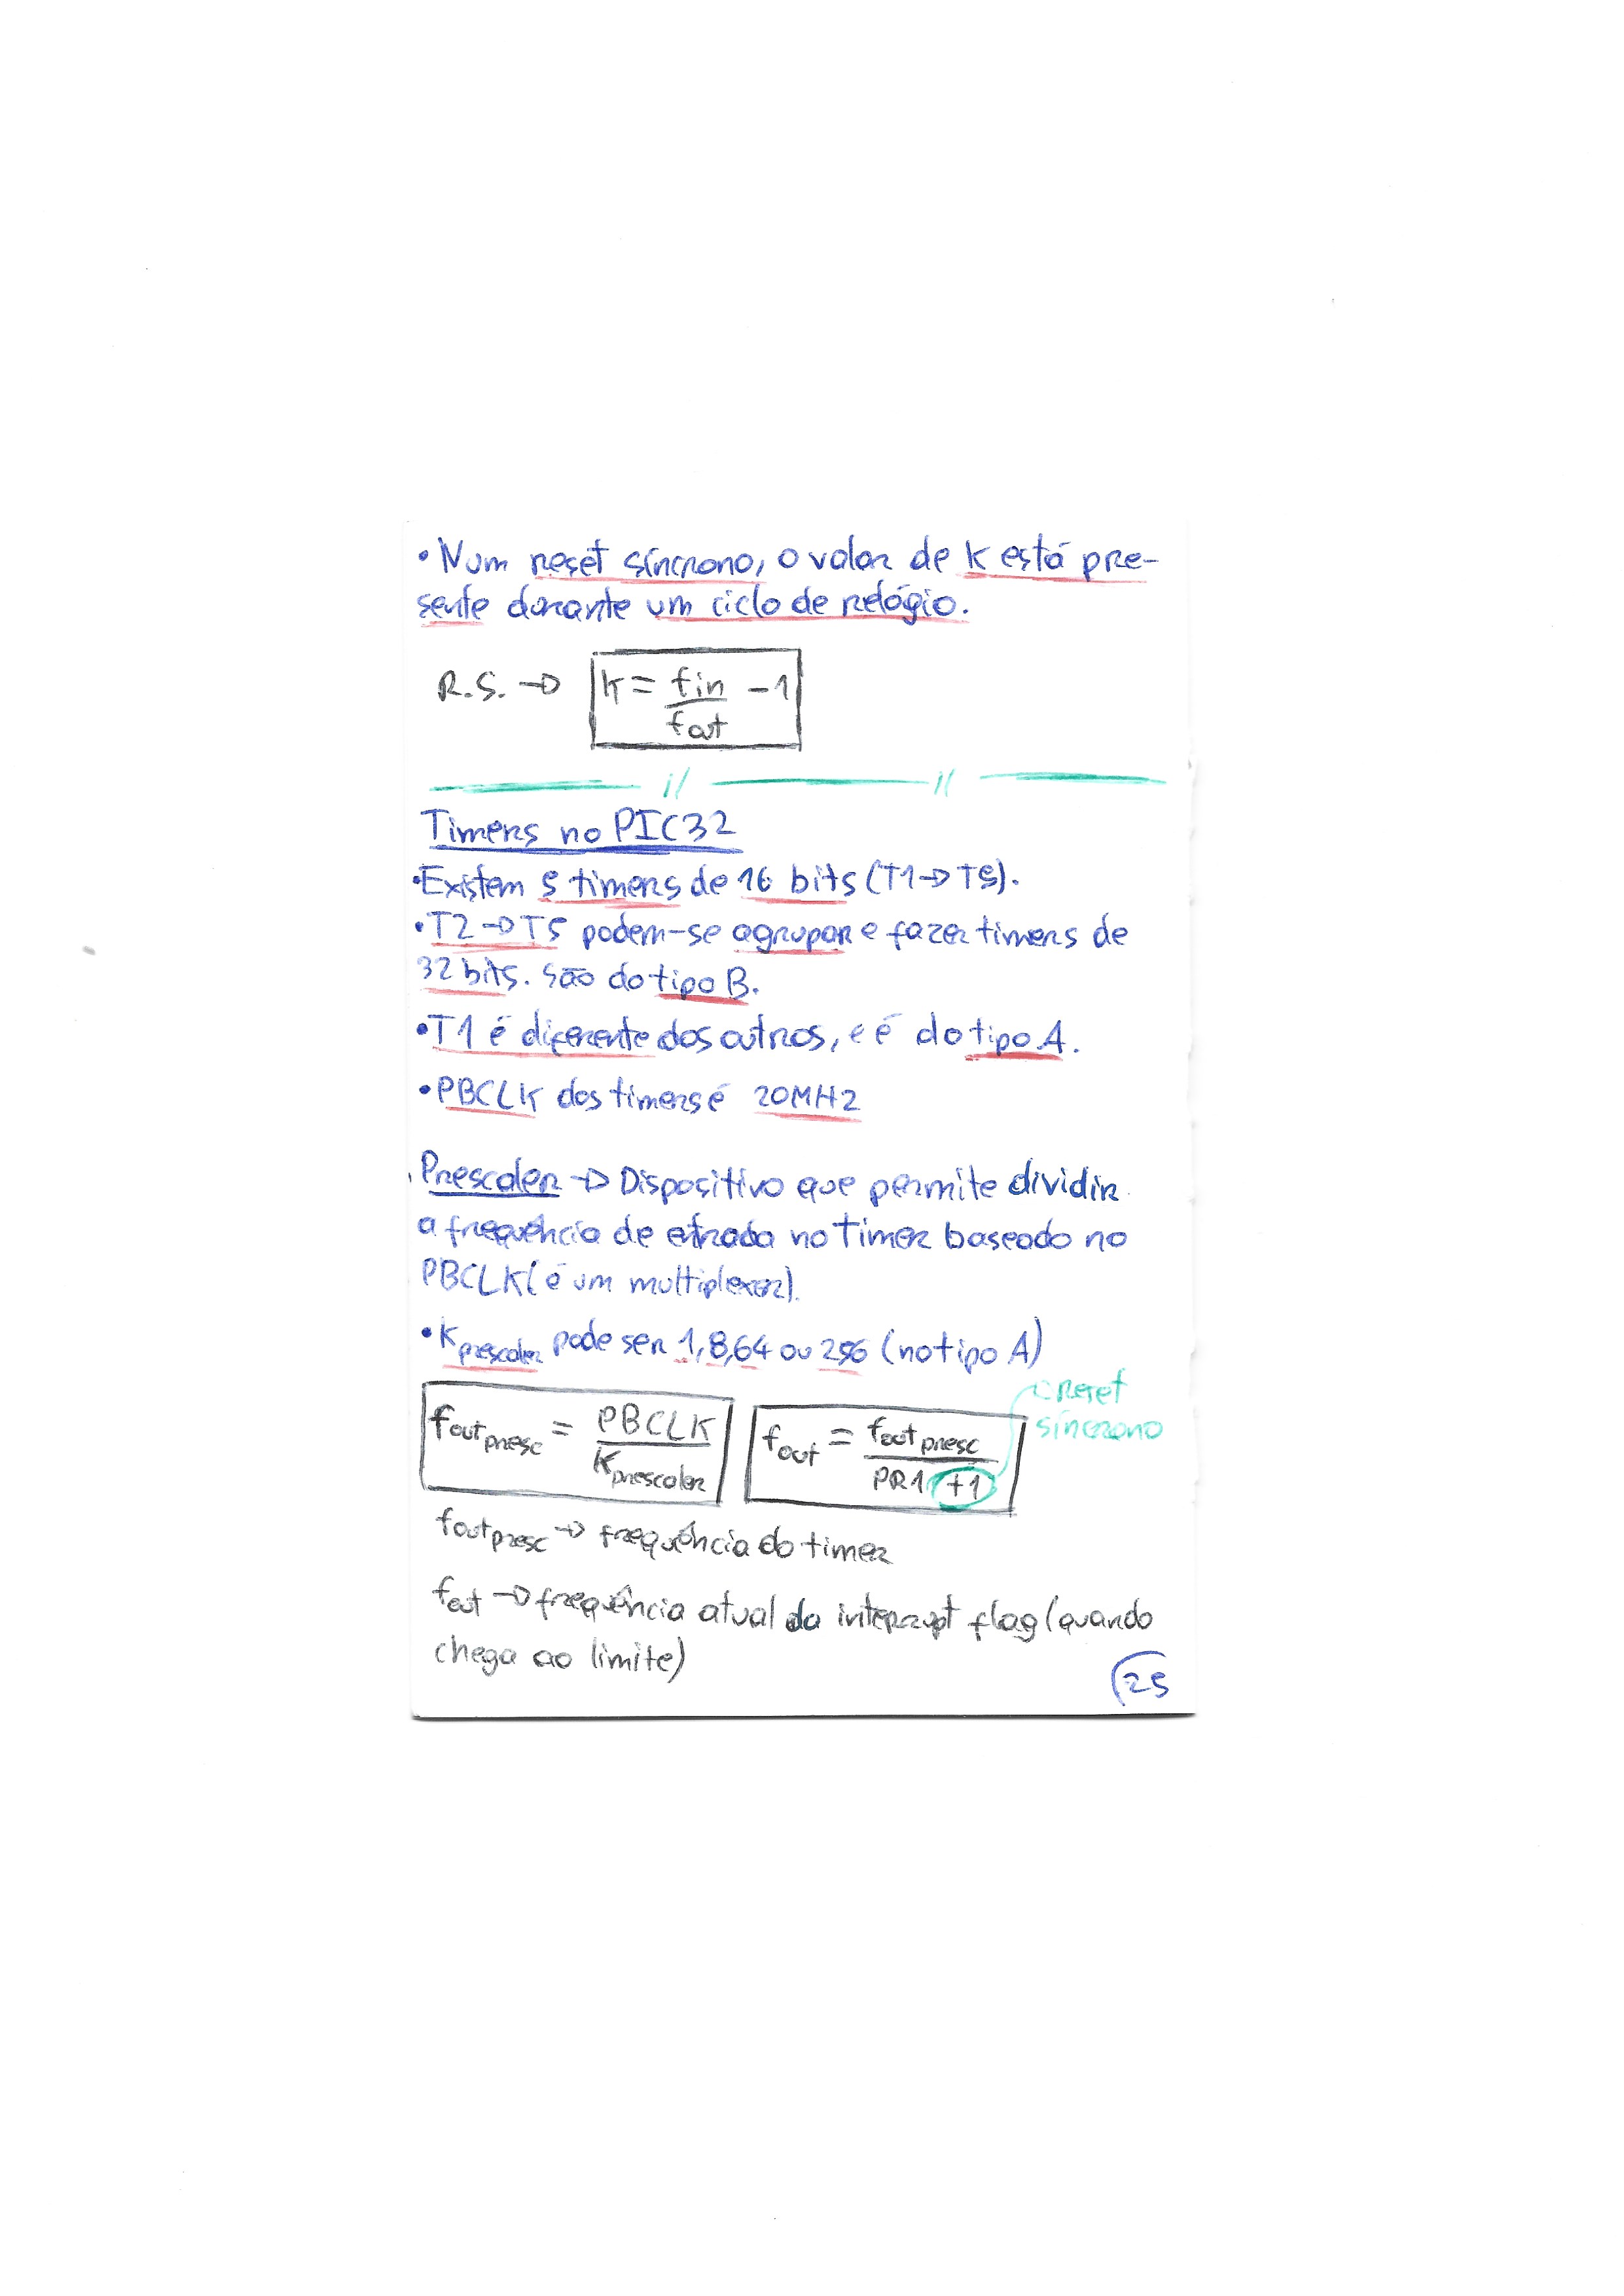 • Num reset síncrono, o valor de k está pre-
sente durante um ciclo de relógio.
R.S. → k = fin/fout - 1
Timers no PIC32
• Existem 5 timers de 16 bits (T1 → T5).
• T2 → T5 podem-se agrupar e fazer timers de
32 bits. São do tipo B.
• T1 é diferente dos outros, e é do tipo A.
• PBCLK dos timers é 20MHz
. Prescaler → Dispositivo que permite dividir
a frequência de entrada no timer baseado no
PBCLK (é um multiplexer).
• Kprescaler pode ser 1, 8, 64 ou 256 (no tipo A)
foutpresc = PBCLK/Kprescaler
fout = foutpresc/PR1 +1
reset
síncrono
foutpresc → frequência do timer
fout → frequência atual da interrupt flag (quando
chega ao limite)
25